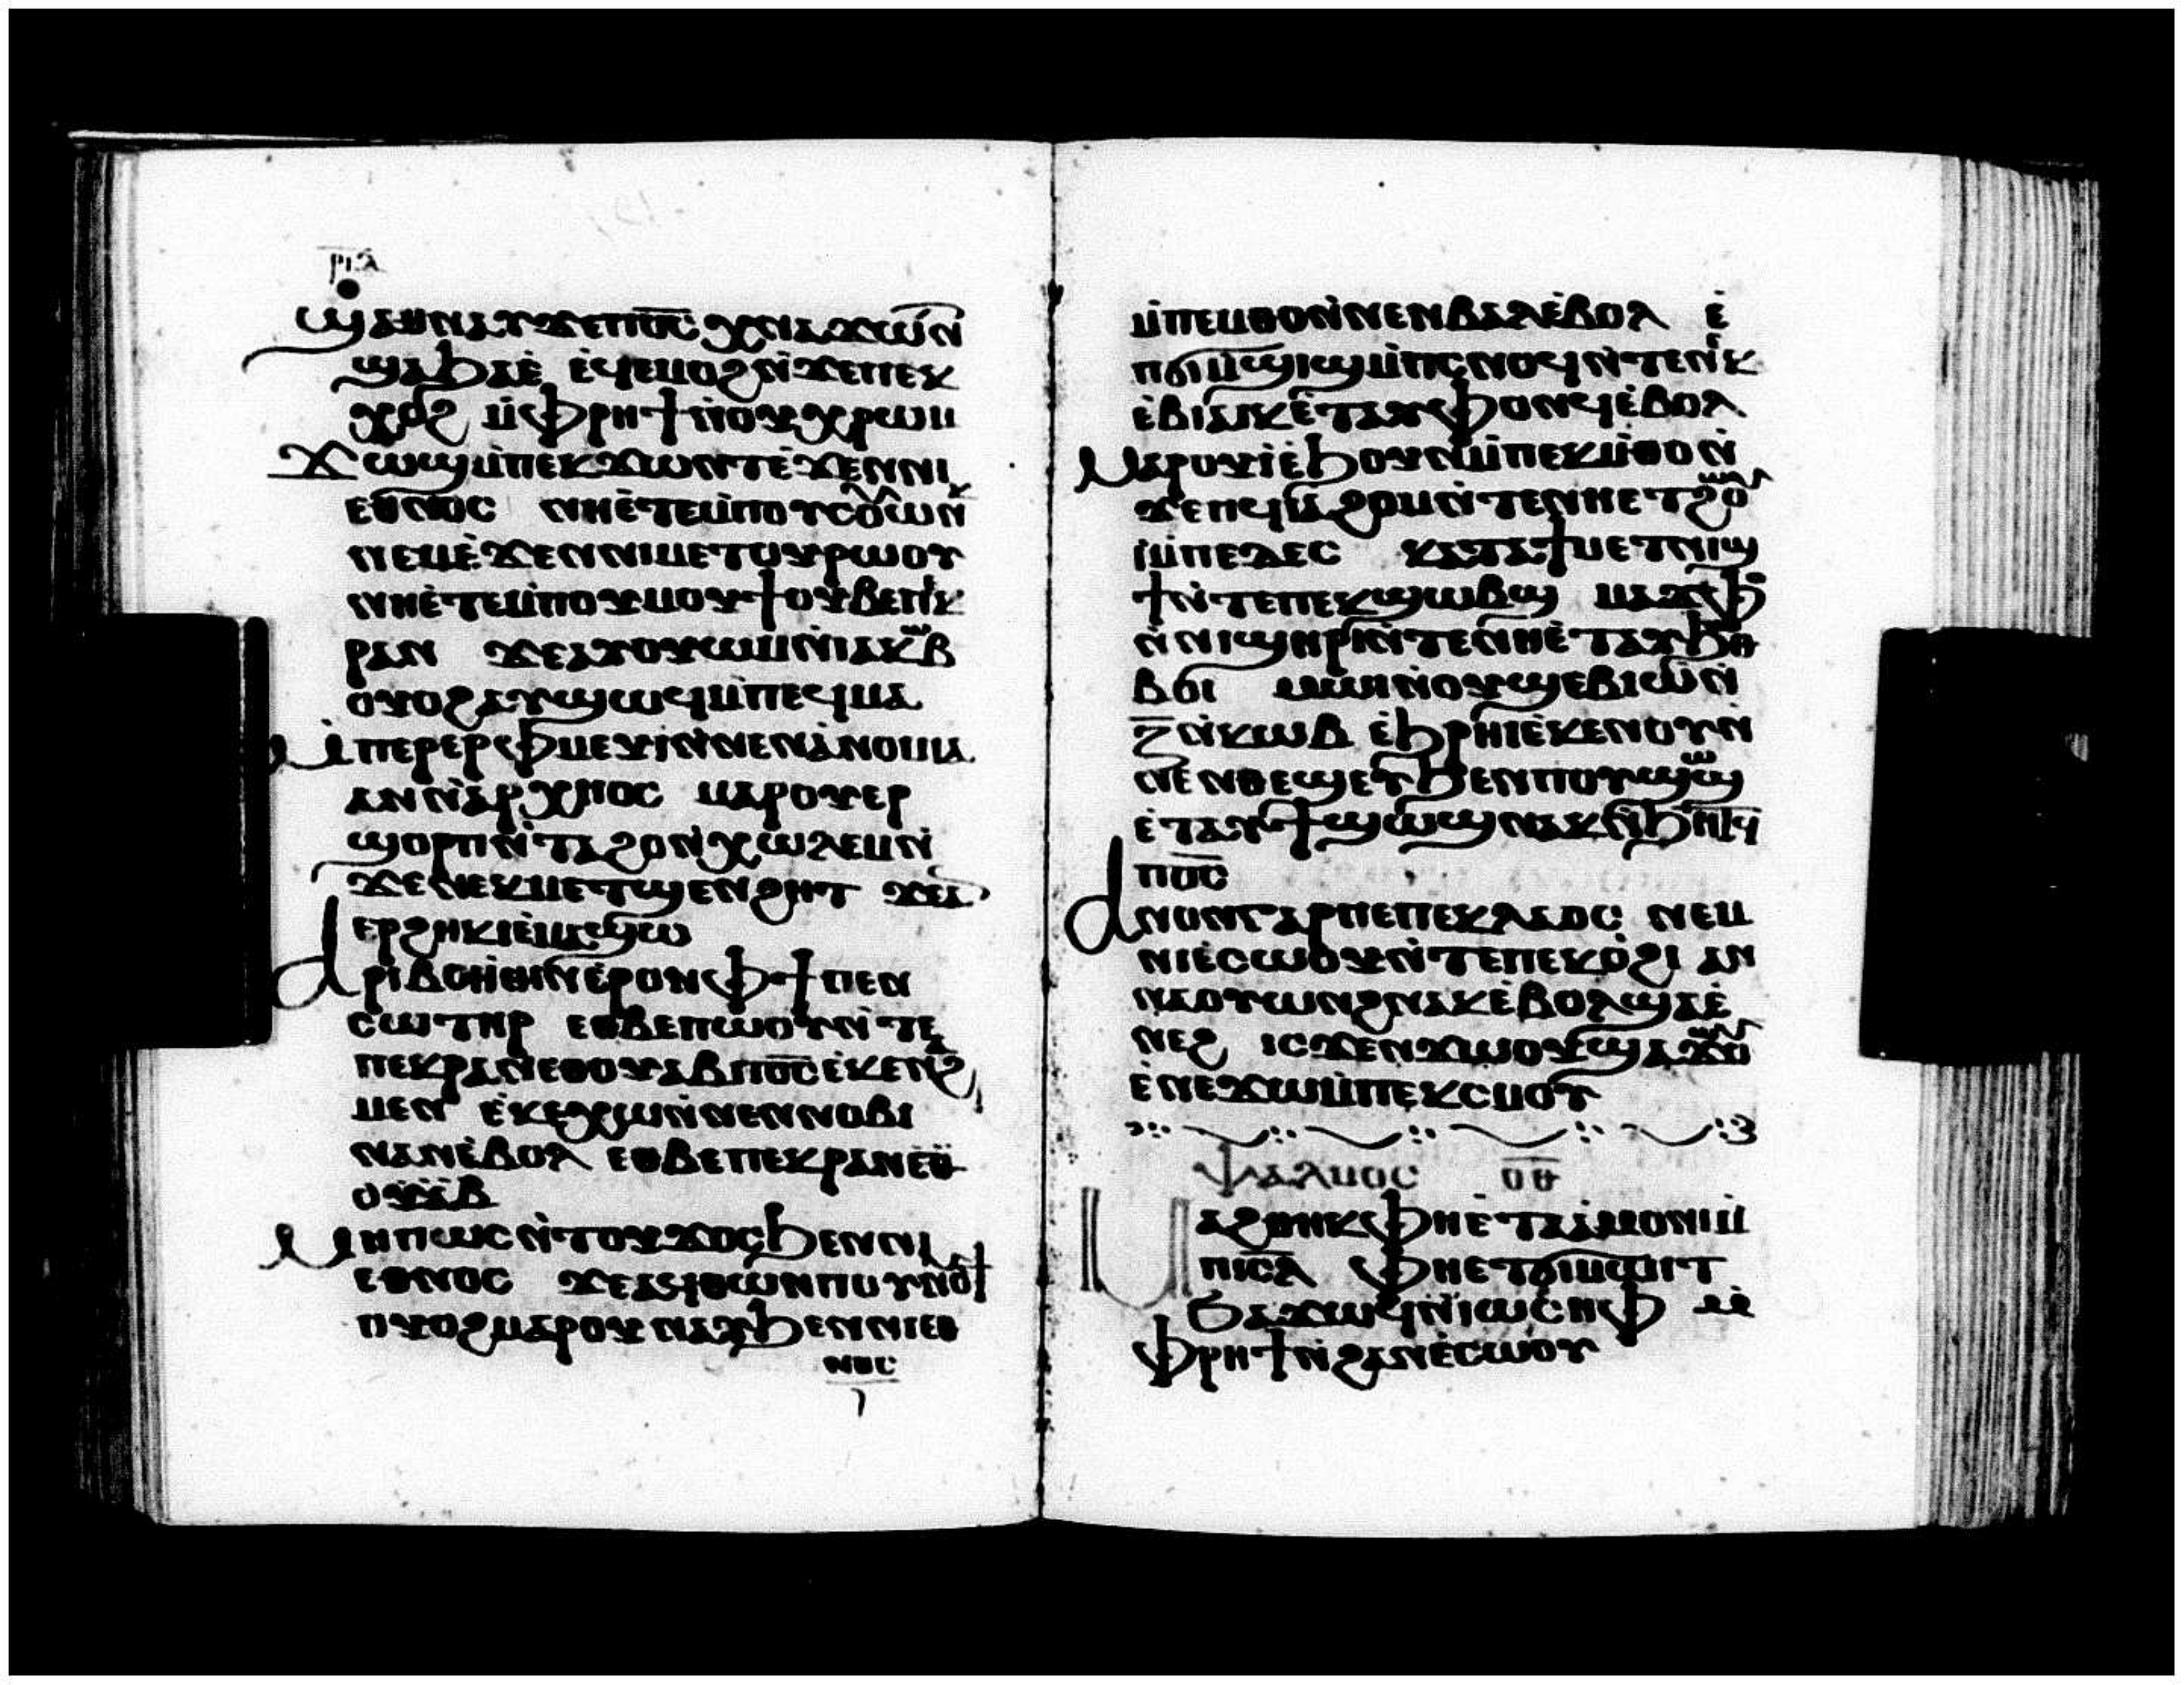 ⲣⲓⲁ
ϣⲁⲑⲛⲁⲩϫⲉⲡⲟ̅ⲥ̅ ⲭⲛⲁϫⲱⲛ̀
ϣⲁⲃⲟⲗ ⲉϥⲉⲙⲟϩⲛ̀ϫⲉⲡⲉⲕ
ⲭⲟϩ ⲙ̀ⲫⲣⲏϯⲛ̀ⲟⲩⲭⲣⲱⲙ
ϫⲱϣⲙ̀ⲡⲉⲕϫⲱⲛⲧⲉ̀ϫⲉⲛⲛⲓ
ⲉⲑⲛⲟⲥ ⲛⲏⲉ̀ⲧⲉⲙ̀ⲡⲟⲩⲥⲟⲩⲱⲛⲕ
ⲛⲉⲙⲉ̀ϫⲉⲛⲛⲓⲙⲉⲧⲟⲩⲣⲱⲟⲩ
ⲛⲏⲉ̀ⲧⲉⲙ̀ⲡⲟⲩⲙⲟⲩϯⲟⲩⲃⲉⲡⲉⲕ
ⲣⲁⲛ ϫⲉⲁⲩⲟⲩⲱⲙⲛ̀ⲓⲁⲕⲱⲃ
ⲟⲩⲟϩⲁⲩϣⲱϥⲙ̀ⲡⲉϥⲙⲁ
ⲙ̀ⲡⲉⲣⲉⲣⲫⲙⲉⲩⲓ̀ⲛ̀ⲛⲉⲛⲁ̀ⲛⲟⲙⲓⲁ
ⲁⲛⲛ̀ⲁⲣⲭⲉⲟⲥ ⲙⲁⲣⲟⲩⲉⲣ
ϣⲟⲣⲡⲛ̀ⲧⲁϩⲟⲛⲛ̀ⲭⲱⲗⲉⲙⲛ̀
ϫⲉⲛⲉⲕⲙⲉⲧϣⲉⲛϩⲏⲧ ϫⲉⲁⲛ
ⲉⲣϩⲏⲕⲓⲉ̀ⲙⲁϣⲱ
ⲁⲣⲓⲃⲟⲏ̀ⲑⲓⲛⲉ̀ⲣⲟⲛⲫϯⲡⲉⲛ
ⲥⲱⲧⲏⲣ ⲉⲑⲃⲉⲡⲱⲟⲩⲛ̀ⲧⲉ
ⲡⲉⲕⲣⲁⲛⲉⲑⲟⲩⲁⲃⲡⲟ̅ⲥ̅ⲉⲕⲉⲛⲁϩ
ⲙⲉⲛ ⲉ̀ⲕⲉⲭⲱⲛ̀ⲛⲉⲛⲛⲟⲃⲓ
ⲛⲁⲛⲉ̀ⲃⲟⲗ ⲉⲑⲃⲉⲡⲉⲕⲣⲁⲛⲉⲑ
ⲟⲩⲁⲃ
ⲙⲏⲡⲱⲥⲛ̀ⲧⲟⲩϫⲟⲥϧⲉⲛⲛⲓ
ⲉⲑⲛⲟⲥ ϫⲉⲁϥⲑⲱⲛⲡⲟⲩⲛⲟⲩϯ
ⲟⲩⲟϩⲙⲁⲣⲟⲩⲛⲁⲩϧⲉⲛⲛⲓⲉⲑ
ⲛⲟⲥ
ⲙ̀ⲡⲉⲙⲑⲟⲛ̀ⲛⲉⲛⲃⲁⲗⲉ̀ⲃⲟⲗ ⲉ̀
ⲡϭⲓⲙ̀ⲡϣⲓϣⲙ̀ⲡⲥⲛⲟϥⲛ̀ⲧⲉⲛⲉⲕ
ⲉ̀ⲃⲓⲁⲓⲕⲉ̀ⲧⲁⲩⲫⲟⲛϥⲉ̀ⲃⲟⲗ
ⲙⲁⲣⲟⲩⲓ̀ⲉ̀ϧⲟⲩⲛⲙ̀ⲡⲉⲕⲙ̀ⲑⲟⲛ̀
ϫⲉⲡϥⲓⲁϩⲟⲙⲛ̀ⲧⲉⲛⲏⲉⲧⲥⲟⲛϩ
ⲙ̀ⲡⲉⲇⲉⲥ ⲕⲁⲧⲁϯⲙⲉⲧⲛⲓϣ
ϯⲛ̀ⲧⲉⲡⲉⲕϣⲱⲃϣ ⲙⲁⲧⲁⲛϧⲟ
ⲛ̀ⲛⲓϣⲏⲣⲓⲛ̀ⲧⲉⲛⲏⲉ̀ⲧⲁⲩϧⲟⲑ
ⲃⲟⲩ ⲙⲟⲓⲛ̀ⲟⲩϣⲉⲃⲓⲱ̀ⲛ̀
ⲍ̅ⲛ̀ⲕⲱⲃ ⲉ̀ϧⲣⲏⲓⲉ̀ⲕⲉⲛⲟⲩⲛ̀
ⲛⲉⲛⲑⲉϣⲉⲩϧⲉⲛⲡⲟⲩϣⲱϣ
ⲉ̀ⲧⲁⲩϯϣⲱϣⲛⲁⲕⲛ̀ϧⲏⲧϥ
ⲡⲟ̅ⲥ̅
ⲁⲛⲟⲛⲅⲁⲣⲡⲉⲡⲉⲕⲗⲁⲟⲥ ⲛⲉⲙ
ⲛⲓⲉ̀ⲥⲱⲟⲩⲛ̀ⲧⲉⲡⲉⲕⲟ̀ϩⲓ ⲁⲛ
ⲛⲁⲟⲩⲱⲛϩⲛⲁⲕⲉ̀ⲃⲟⲗϣⲁⲉ̀
ⲛⲉϩ ⲓⲥϫⲉⲛϫⲱⲟⲩϣⲁϫⲱⲟⲩ
ⲉ̀ⲛⲉϫⲱⲙ̀ⲡⲉⲕⲥⲙⲟⲩ
ⲯⲁⲗⲙⲟⲥ ⲟ̅ⲑ̅
ⲙⲁϩⲑⲏⲕⲫⲏⲉ̀ⲧⲁⲙⲟⲛⲓⲙ̀
ⲡⲓⲥ̅ⲗ̅ ⲫⲏⲉⲧϭⲓⲙⲱⲓⲧ
ϧⲁϫⲱϥⲛ̀ⲓⲱⲥⲏⲫ ⲙ̀
ⲫⲣⲏϯⲛ̀ϩⲁⲛⲉ̀ⲥⲱⲟⲩ